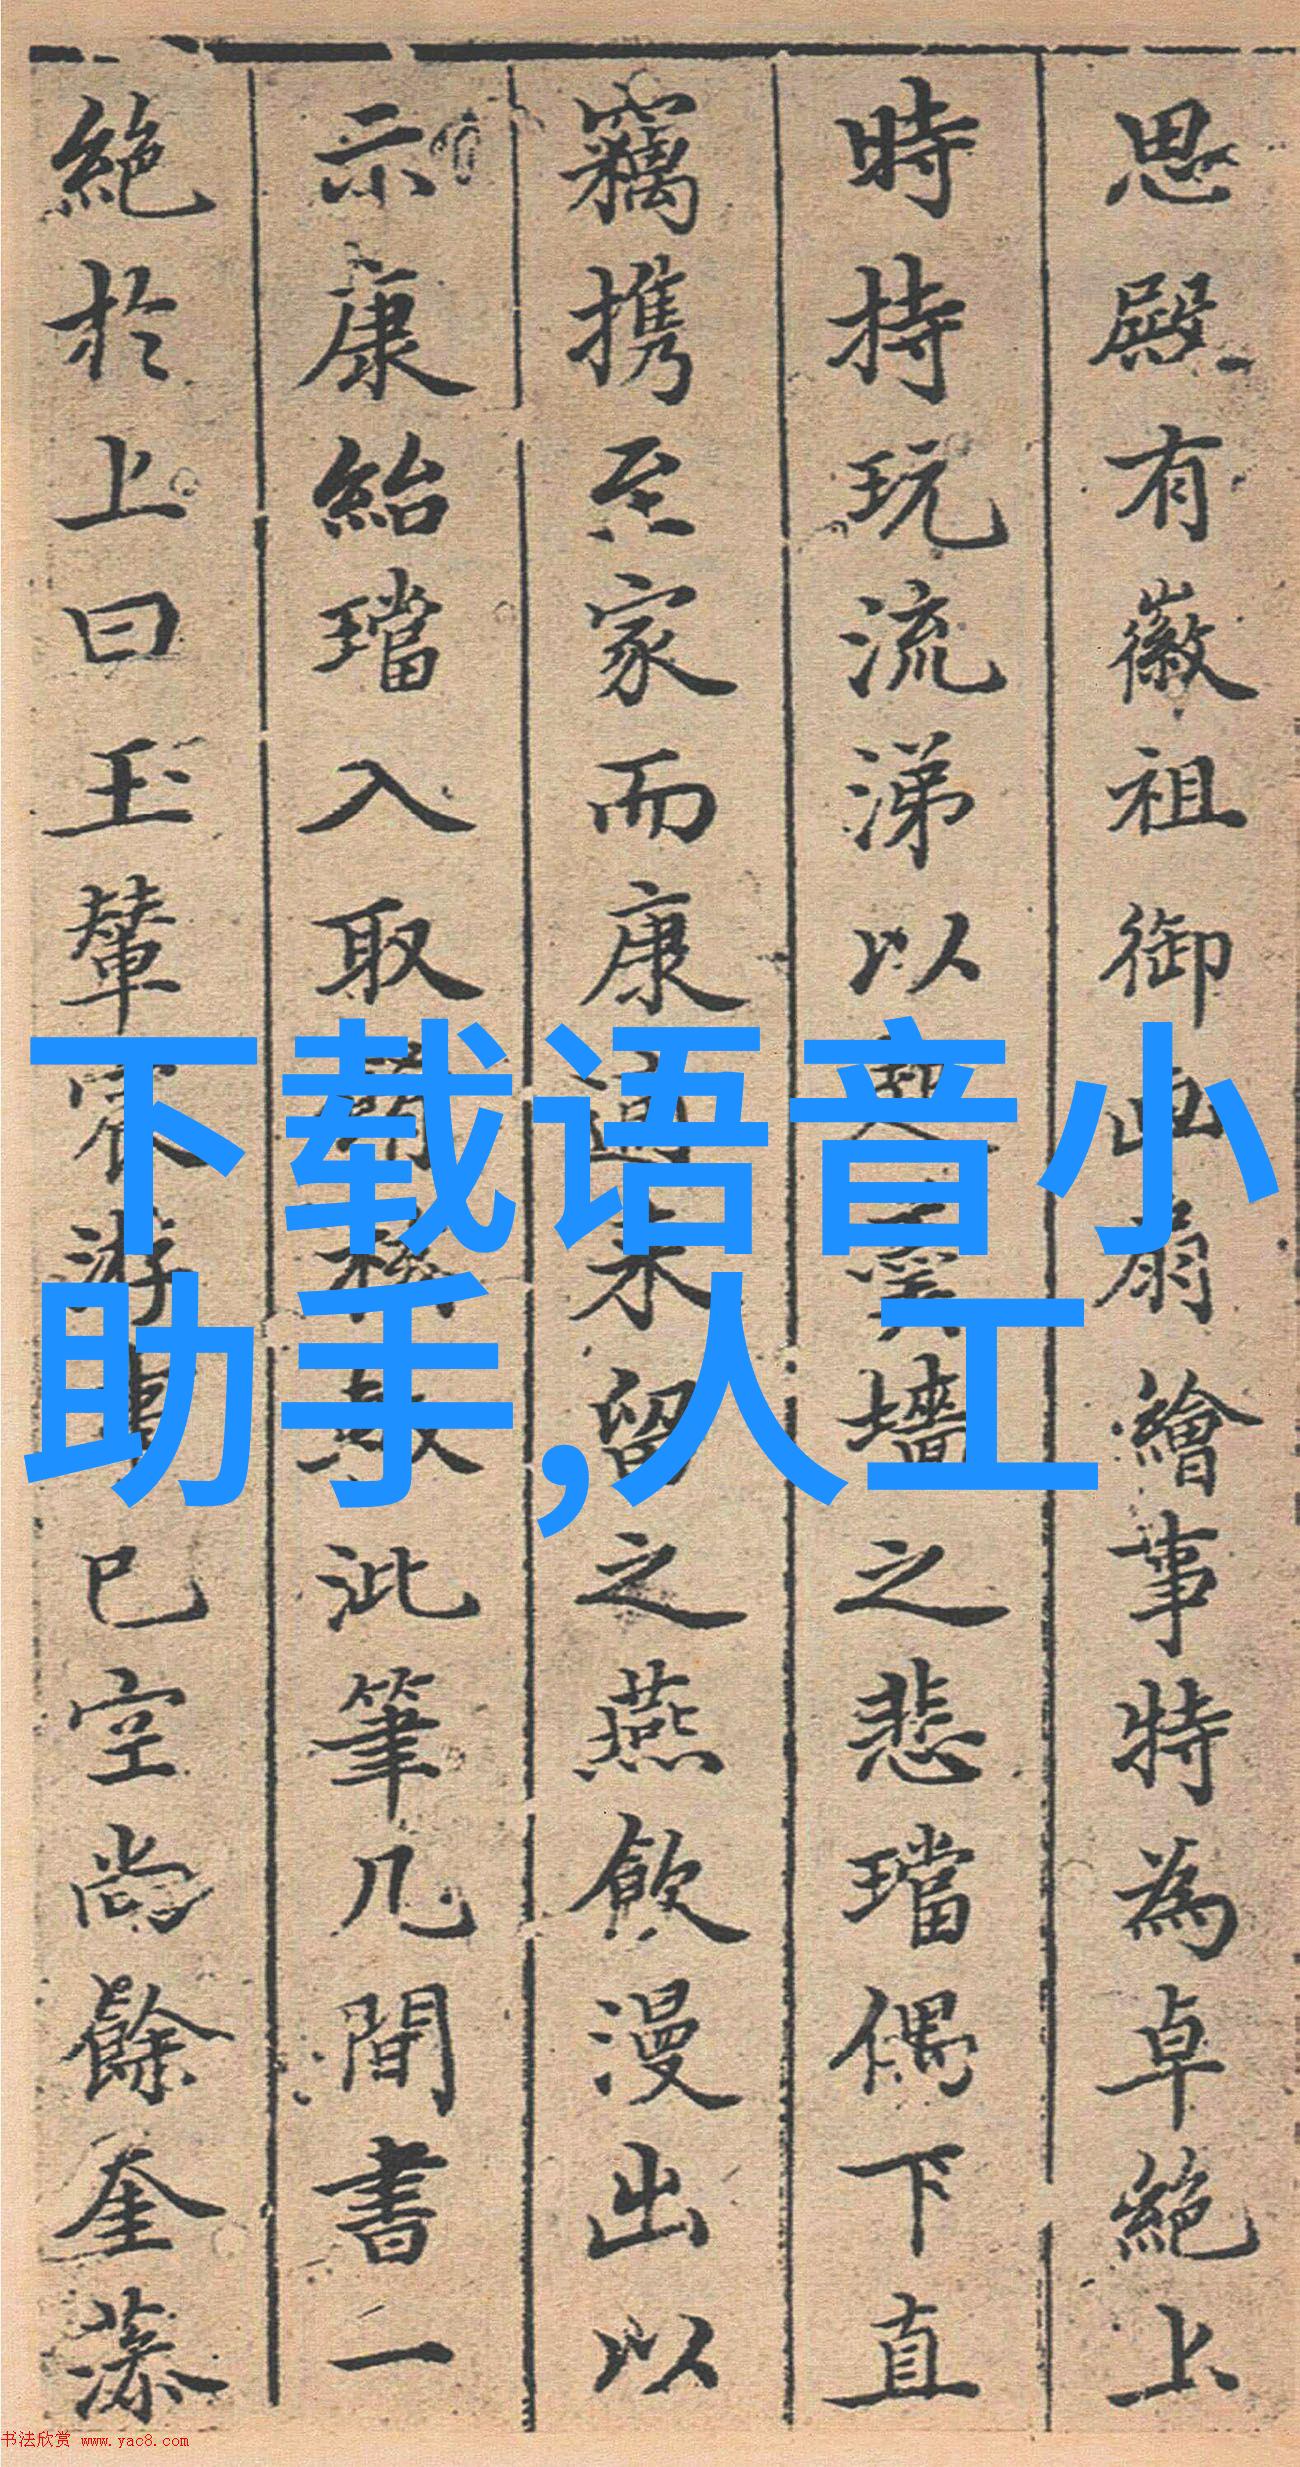 思殿有徽祖御画扇繪事特為卓絶上
時持玩流涕以羹墻之悲璫偶下直
竊携至家而康適来留之燕飲漫出以
示康紿璫入取泚筆几間書一
絶於上曰玉輦宸游事已空尚餘奎藻
下载语音小
助手,人工
书法欣赏 www.yac8.com